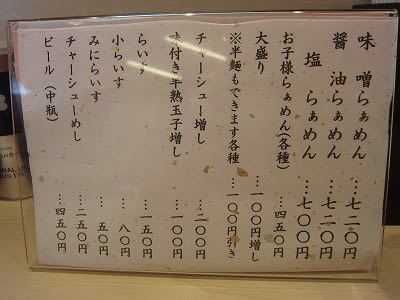 味噌らぁめん…七二〇円
醤油らぁめん…七二〇円
塩らぁめん…七〇〇円
お子様らぁめん(各種)…四五〇円
大盛り…一〇〇円増し
※半麺もできます各種…一〇〇円引き
チャーシュー増し…二〇〇円
味付き半熟玉子増し…一〇〇円
らいす…一五〇円
小らいす…八〇円
みにらいす…五〇円
チャーシューめし…二五〇円
ビール(中瓶)…四五〇円